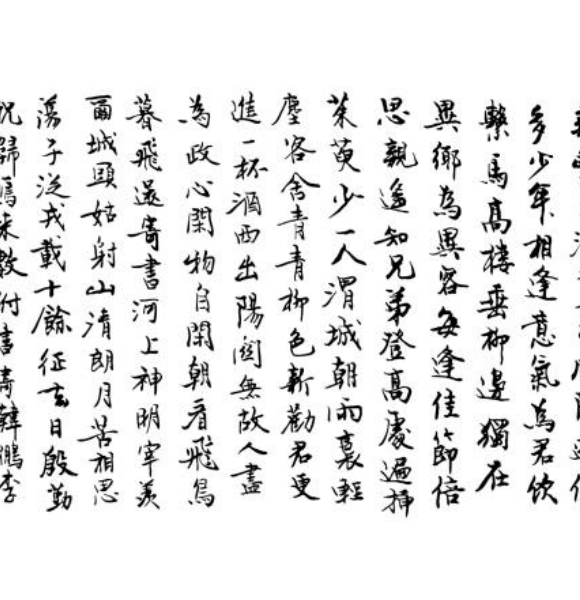 多少年相逢意氣為君飲
繫馬高樓垂柳邊獨在
異鄉為異客每逢佳節倍
思親遙知兄弟登高處遍插
茱萸少一人渭城朝雨裛輕
塵客舍青青柳色新勸君更
進一杯酒西出陽關無故人盡
為政心閑物自閑朝看飛鳥
暮飛還寄書河上神明宰羨
爾城頭姑射山清朗月苦相思
蕩子從戎載十餘征去日殷勤
祝歸鴈來數附書